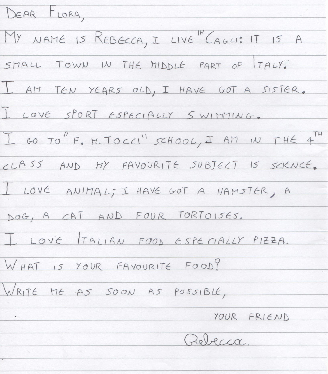 DEAR FLORA,
MY NAME IS REBECCA, I LIVE IN CAGLI: IT IS A
SMALL TOWN IN THE MIDDLE PART OF ITALY.
I AM TEN YEARS OLD, I HAVE GOT A SISTER.
I LOVE SPORT ESPECIALLY SWIMMING.
I GO TO "F. M. TOCCI" SCHOOL, I AM IN THE 4TH
CLASS AND MY FAVOURITE SUBJECT IS SCIENCE.
I LOVE ANIMAL; I HAVE GOT A HAMSTER, A
DOG, A CAT AND FOUR TORTOISES.
I LOVE ITALIAN FOOD ESPECIALLY PIZZA.
WHAT IS YOUR FAVOURITE FOOD?
WRITE ME AS SOON AS POSSIBLE,
YOUR FRIEND
Rebecca.